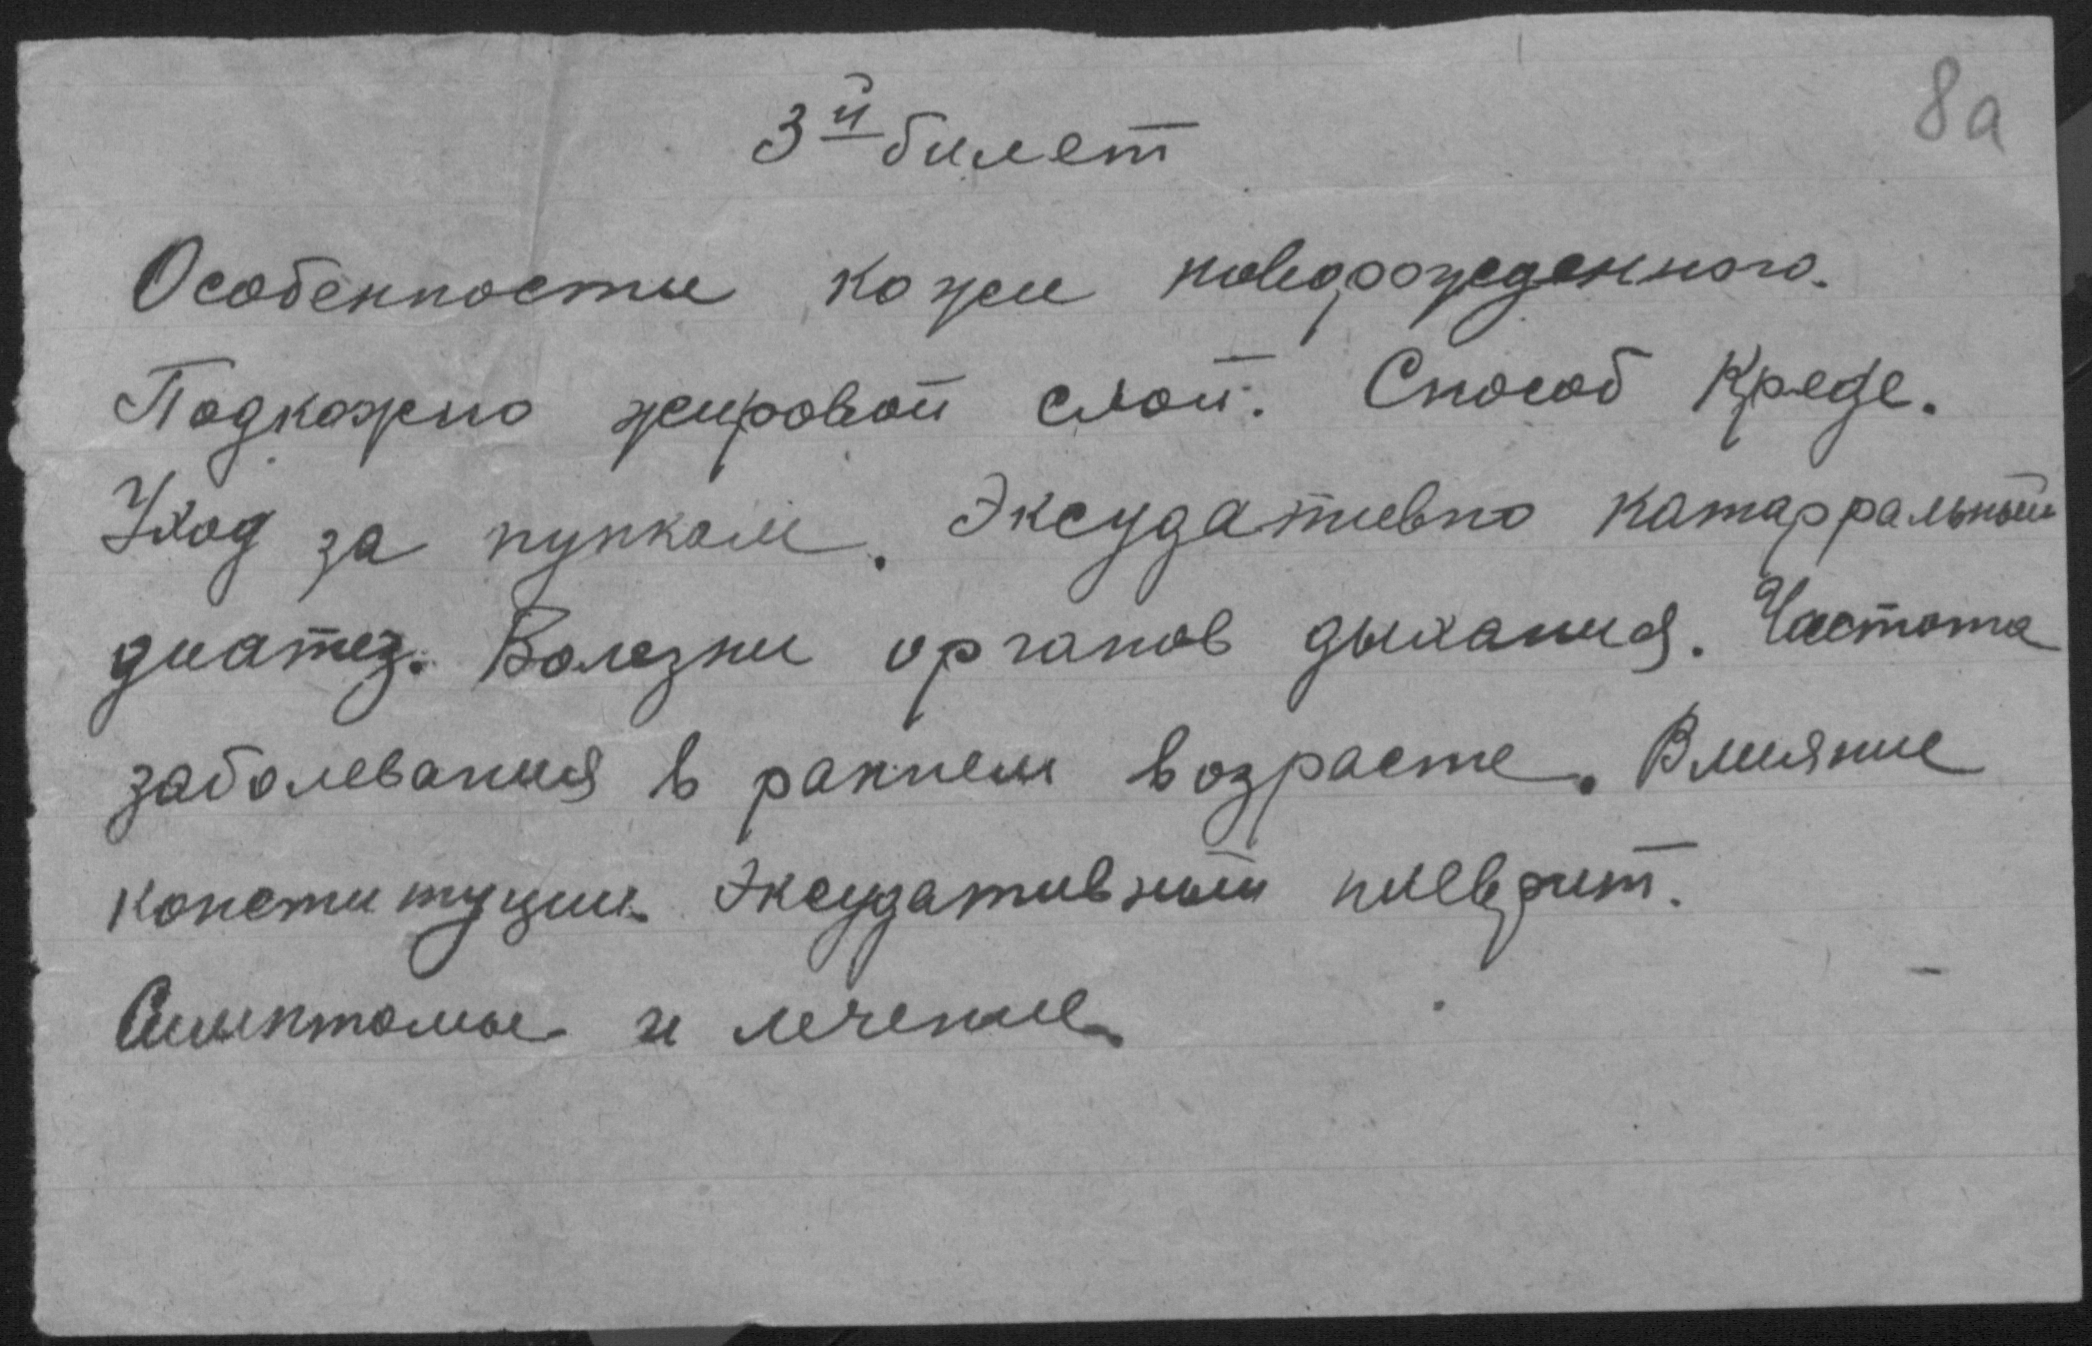 8а
3й билет
Особенности кожи новорожденного.
Подкожно жировой слой. Способ Креде.
Уход за пупком. Эксудативно катарральный
диатез. Болезни органов дыхания. Частота
заболевания в раннем возрасте. Влияние
конституции. Эксудативный плеврит.
Симптомы и лечение.